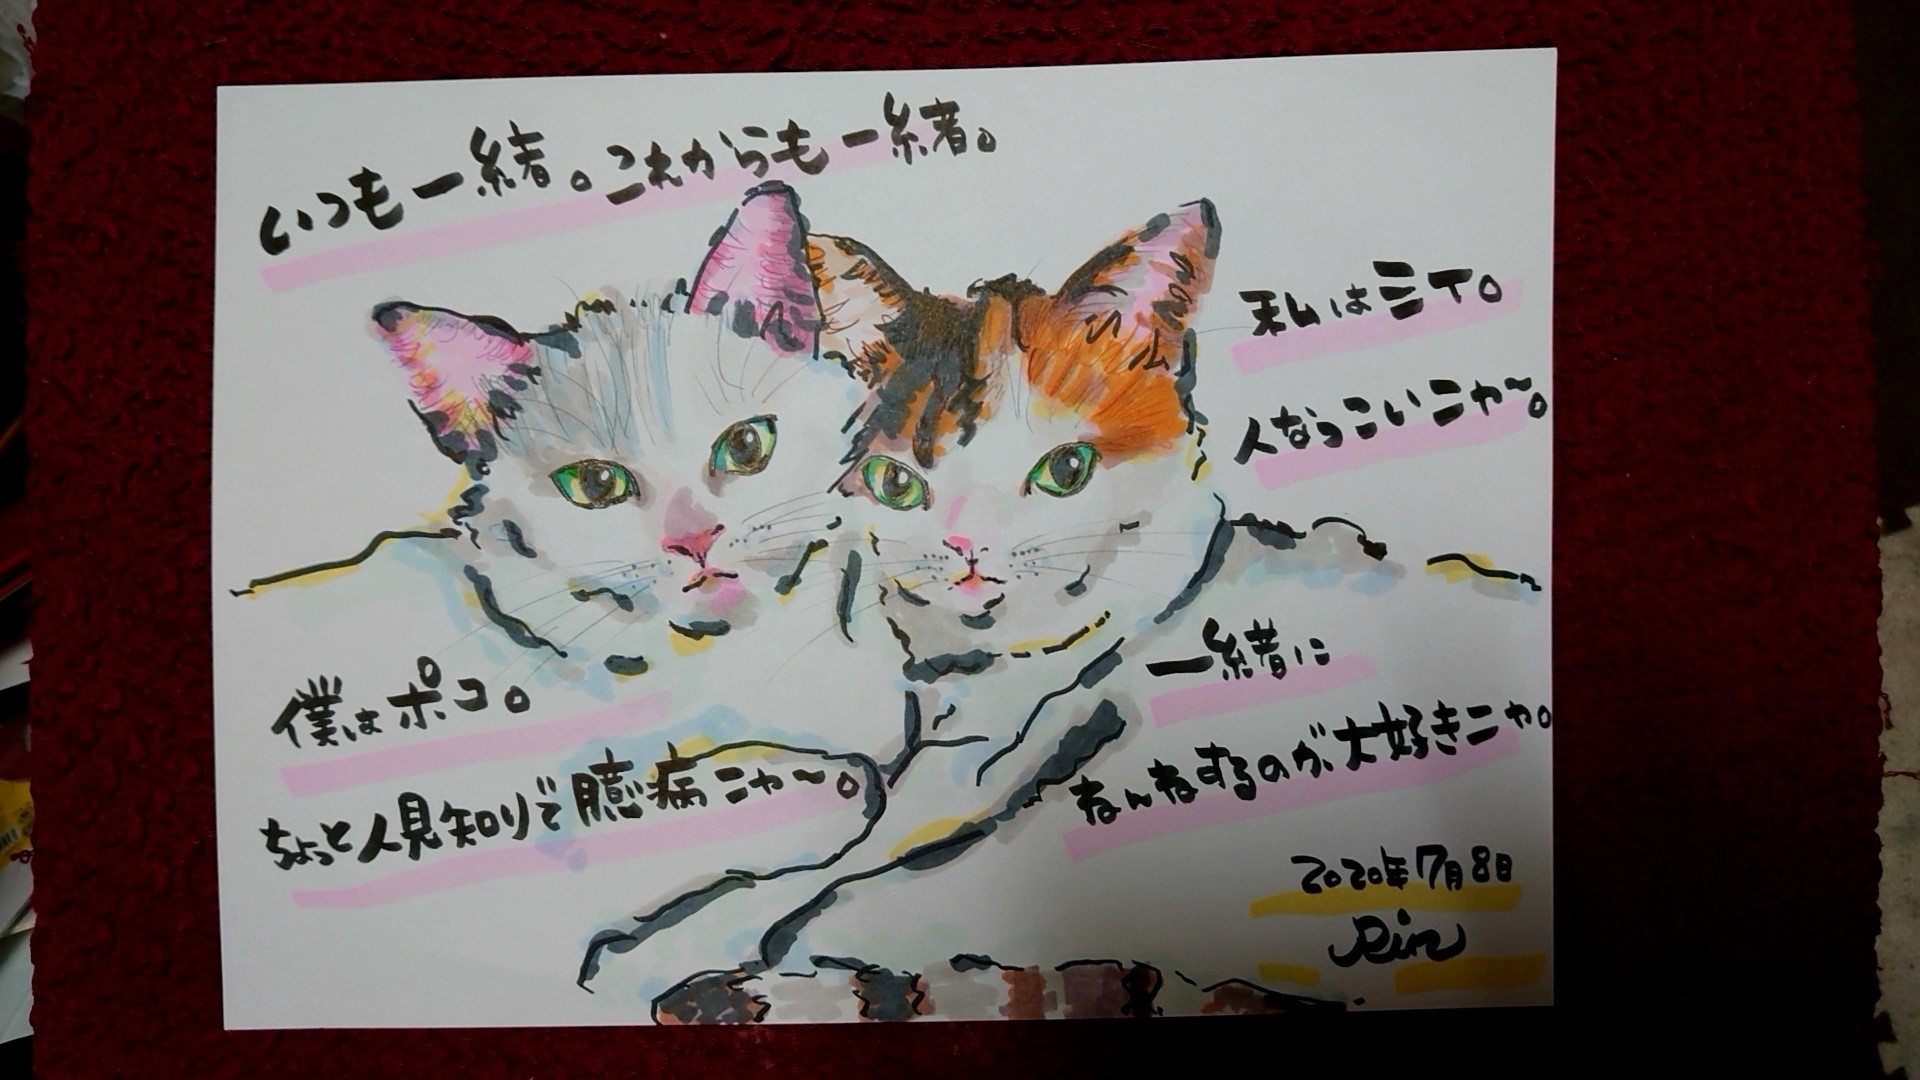 いつも一緒。これからも一緒。
私はミイ。
人なつこいニャ〜。
僕はポコ。
ちょっと人見知りで臆病ニャ〜。
一緒に
ねんねするのが、大好きニャ。
2020年7月8日
Rin